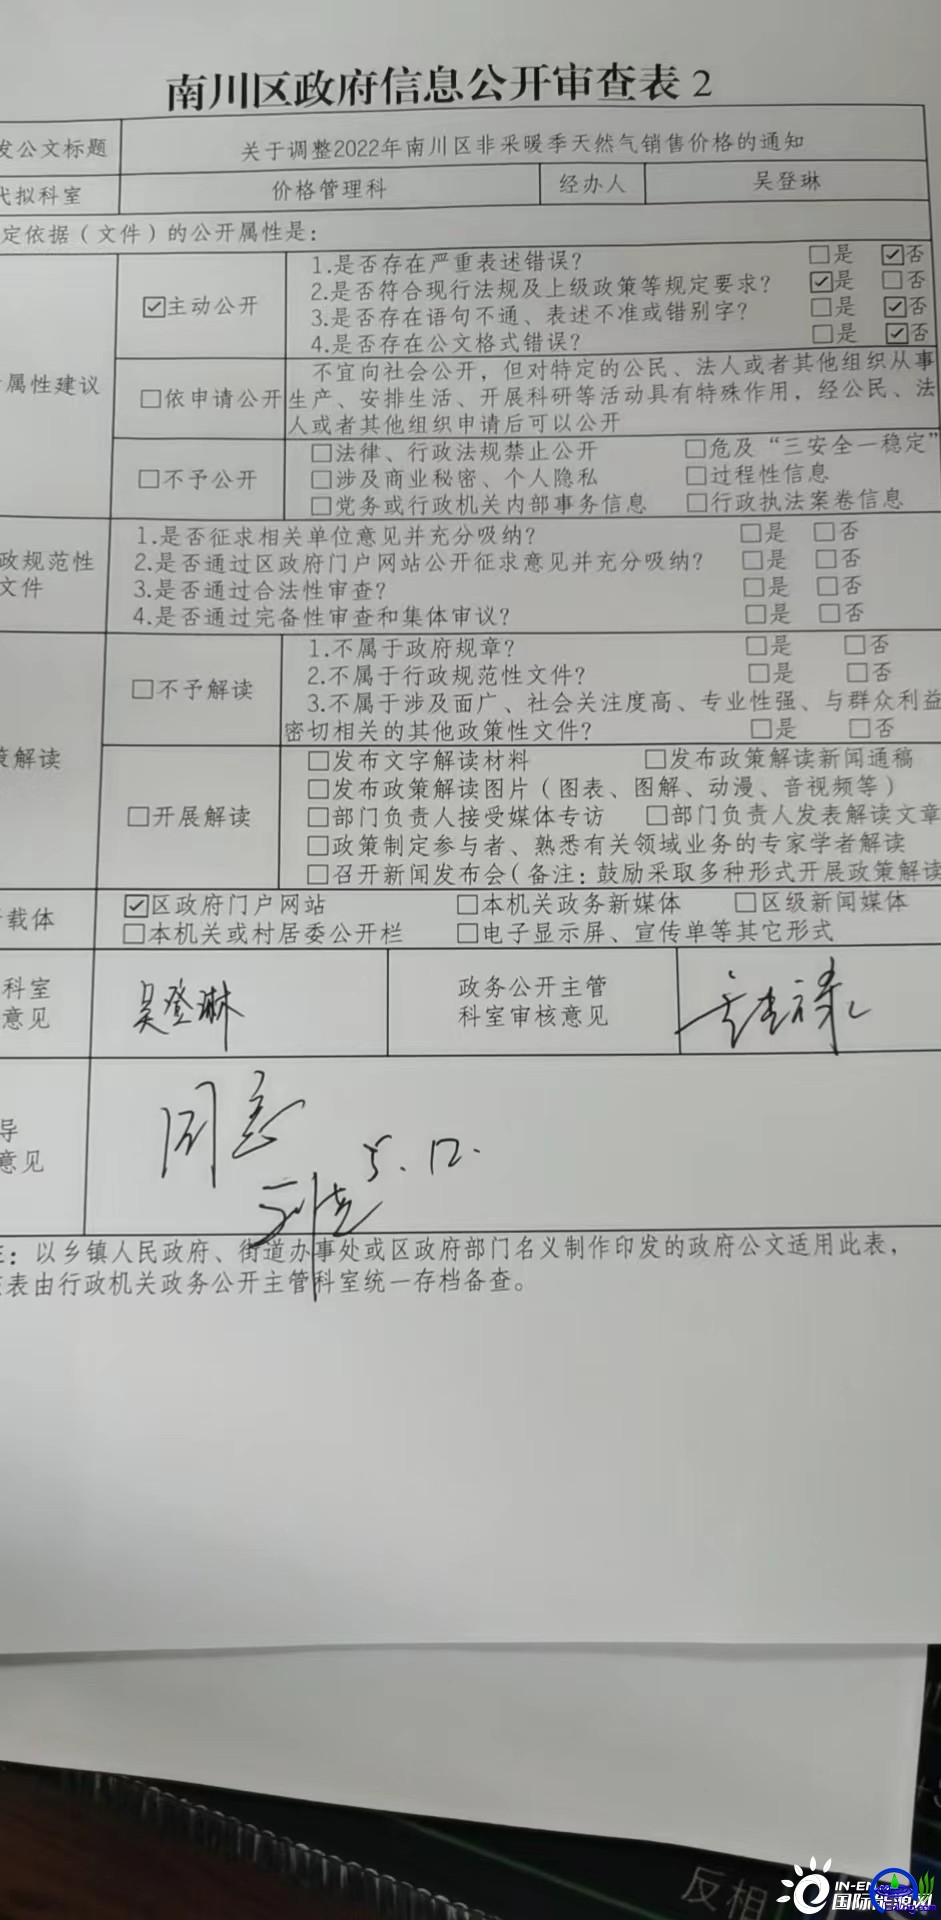 南川区政府信息公开审查表2
发公文标题 关于调整2022年南川区非采暖季天然气销售价格的通知
代拟科室 价格管理科 经办人 吴登琳
定依据（文件）的公开属性是：
属性建议
☑主动公开
1.是否存在严重表述错误？ □是 ☑否
2.是否符合现行法规及上级政策等规定要求？ ☑是 □否
3.是否存在语句不通、表述不准或错别字？ □是 ☑否
4.是否存在公文格式错误？ □是 ☑否
□依申请公开
不宜向社会公开，但对特定的公民、法人或者其他组织从事
生产、安排生活、开展科研等活动具有特殊作用，经公民、法
人或者其他组织申请后可以公开
□不予公开
□法律、行政法规禁止公开 □危及“三安全一稳定”
□涉及商业秘密、个人隐私 □过程性信息
□党务或行政机关内部事务信息 □行政执法案卷信息
政规范性
文件
1.是否征求相关单位意见并充分吸纳？ □是 □否
2.是否通过区政府门户网站公开征求意见并充分吸纳？ □是 □否
3.是否通过合法性审查？ □是 □否
4.是否通过完备性审查和集体审议？ □是 □否
策解读
□不予解读
1.不属于政府规章？ □是 □否
2.不属于行政规范性文件？ □是 □否
3.不属于涉及面广、社会关注度高、专业性强、与群众利益
密切相关的其他政策性文件？ □是 □否
□开展解读
□发布文字解读材料 □发布政策解读新闻通稿
□发布政策解读图片（图表、图解、动漫、音视频等）
□部门负责人接受媒体专访 □部门负责人发表解读文章
□政策制定参与者、熟悉有关领域业务的专家学者解读
□召开新闻发布会（备注：鼓励采取多种形式开展政策解读
载体
☑区政府门户网站 □本机关政务新媒体 □区级新闻媒体
□本机关或村居委公开栏 □电子显示屏、宣传单等其它形式
科室
意见
吴登琳
政务公开主管
科室审核意见
导
意见
同意
5.12.
注：以乡镇人民政府、街道办事处或区政府部门名义制作印发的政府公文适用此表，
该表由行政机关政务公开主管科室统一存档备查。
反相
国际能源网